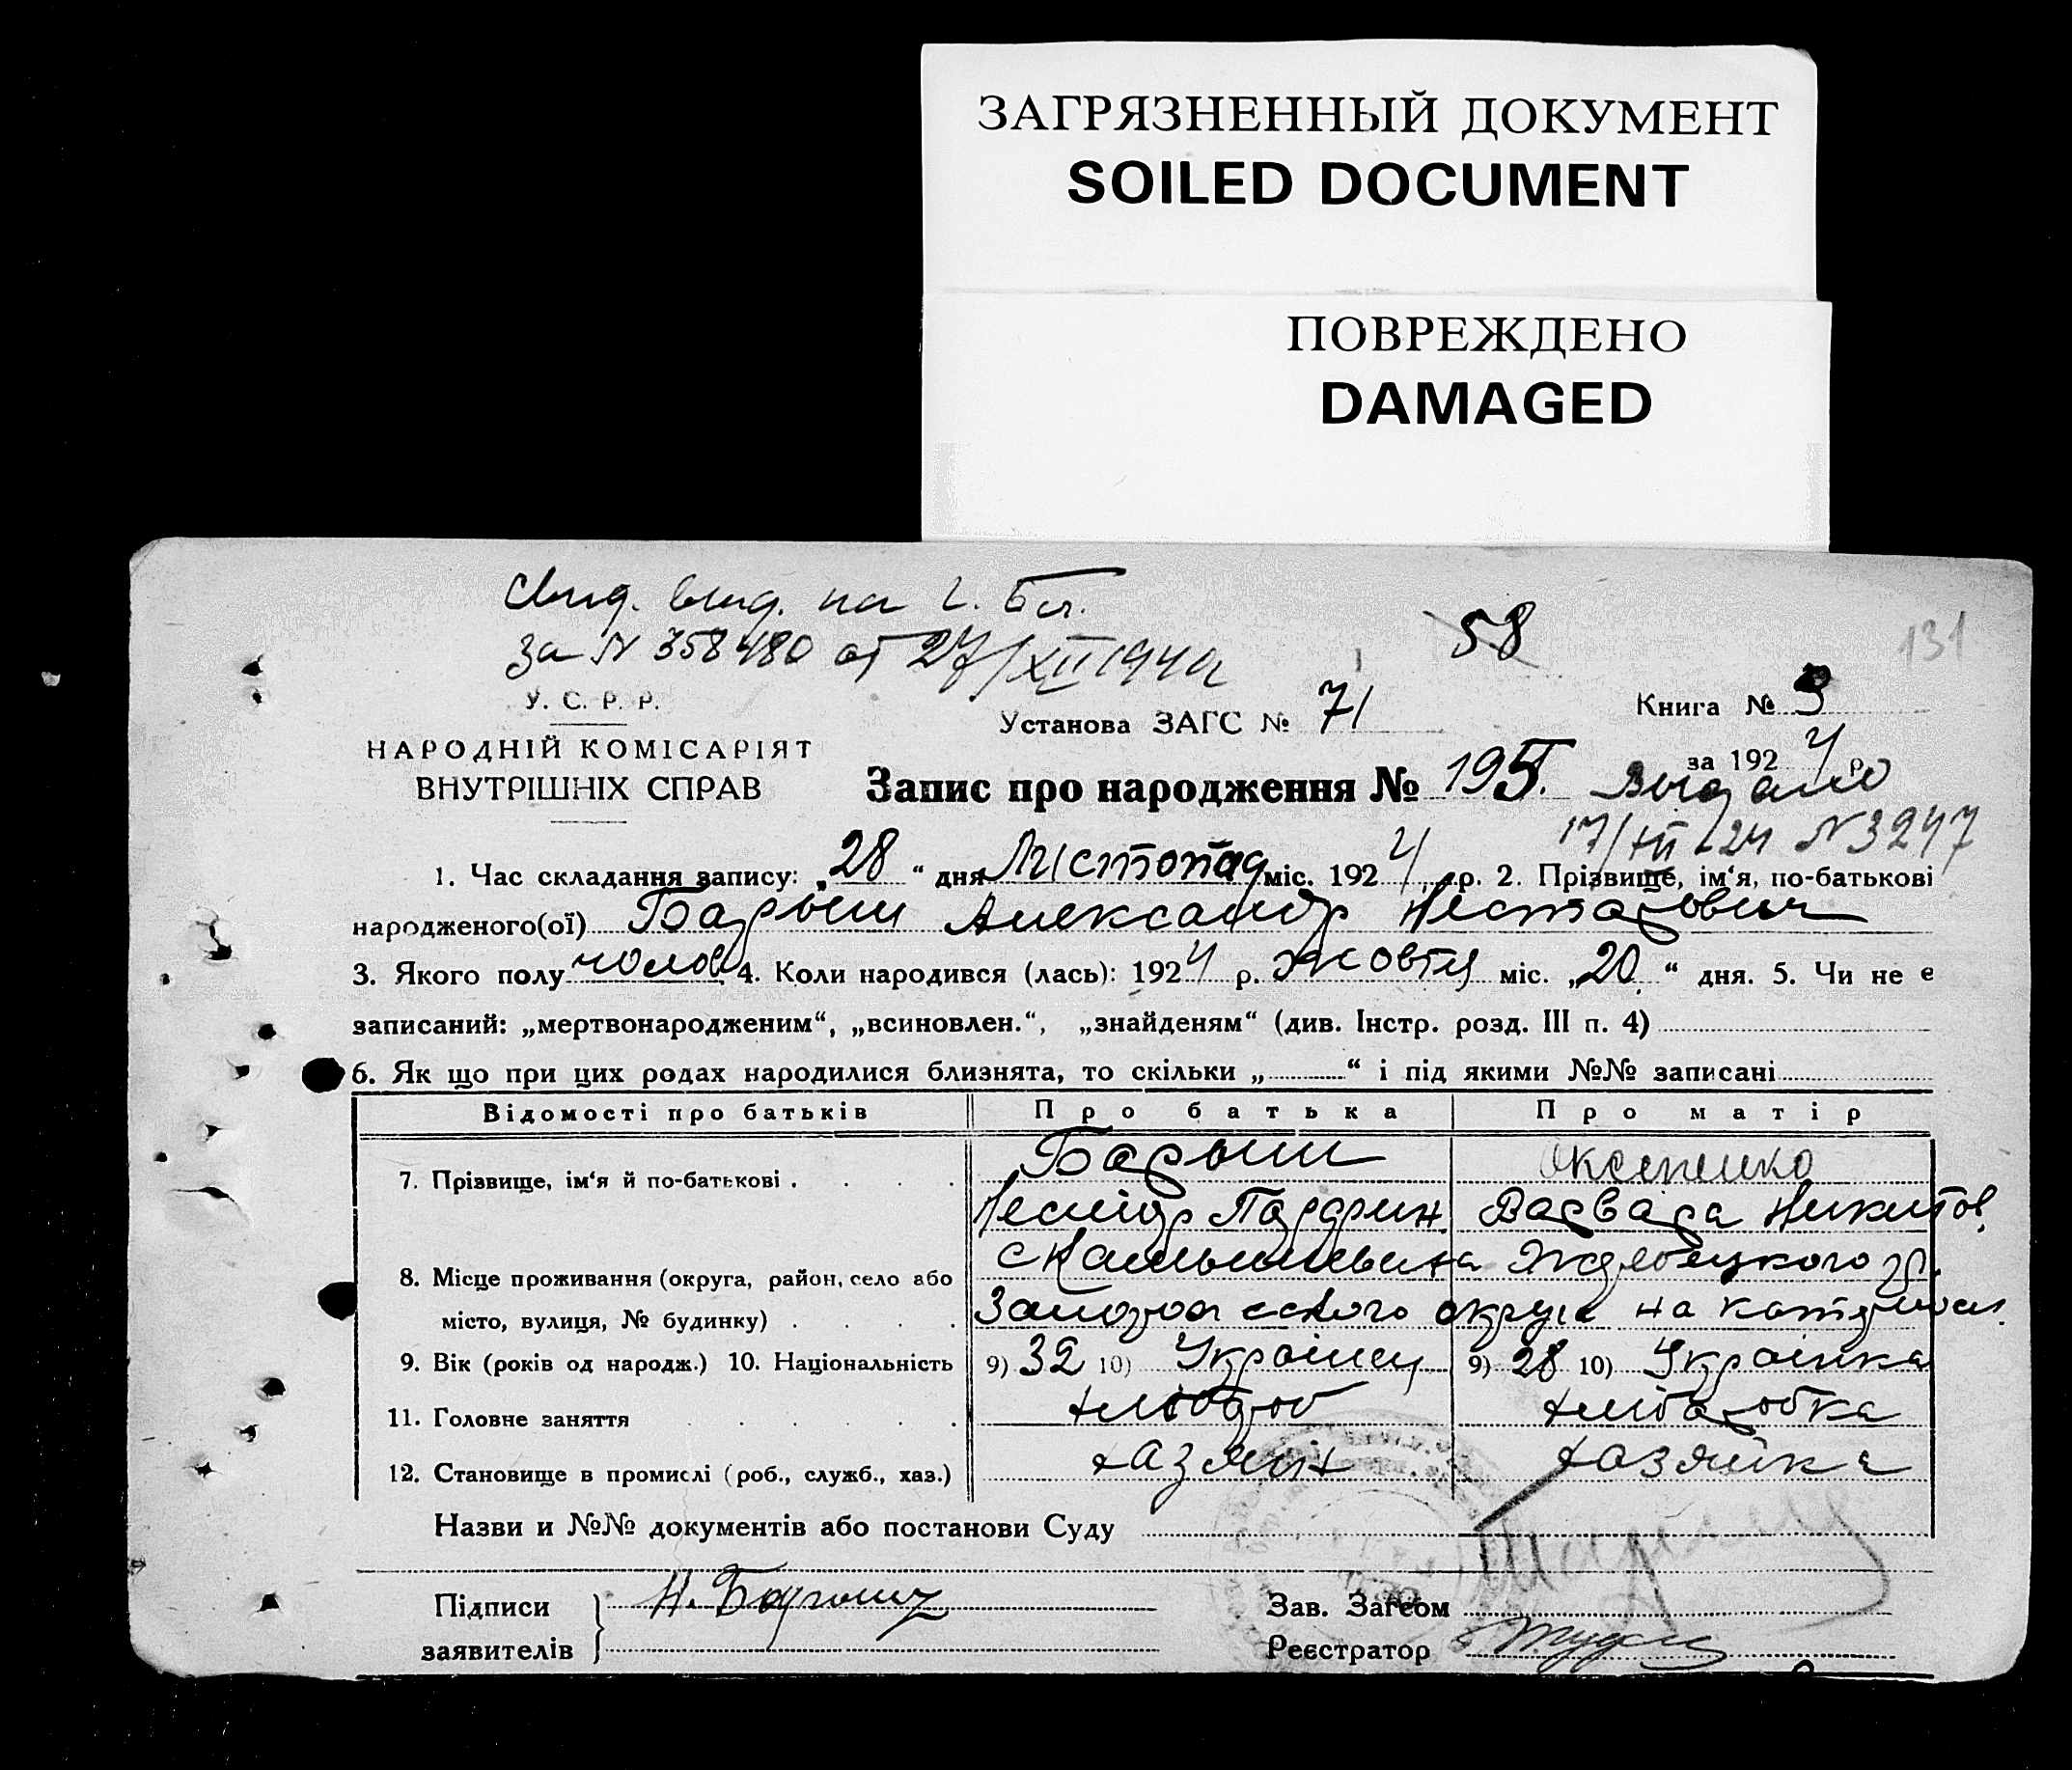 ЗАГРЯЗНЕННЫЙ ДОКУМЕНТ
SOILED DOCUMENT
ПОВРЕЖДЕНО
DAMAGED
на
за N 358480 от 27/XII 1940
58
131
У. С. Р. Р.
Установа ЗАГС № 71
Книга № 3
НАРОДНІЙ КОМІСАРІЯТ
ВНУТРІШНІХ СПРАВ
за 1924 р
Запис про народження № 195.
Выдано
17/XII 24 N 3247
1. Час складання запису: „28 “ дня Листопад міс. 1924 р. 2. Прізвище, ім‘я, по-батькові
народженого(ої) Барыш Александр Несторович
3. Якого полу чолов 4. Коли народився (лась): 1924 р. Жовтц міс. „20 “ дня. 5. Чи не є
записаний: „мертвонародженим“, „всиновлен.“, „знайденям“ (див. Інстр. розд. III п. 4)
6. Як що при цих родах народилися близнята, то скільки „ “ і під якими №№ записані
Відомості про батьків Про батька Про матір
7. Прізвище, ім‘я й по-батькові Барыш
Варвара Никитов.
8. Місце проживання (округа, район, село або
місто, вулиця, № будинку) округа на
9. Вік (років од народж.) 10. Національність 9) 32 10) Украінец 9) 28 10) Украінка
11. Головне заняття хлібороб хліборобка
12. Становище в промислі (роб., служб., хаз.) хазяін хазяйка
Назви и №№ документів або постанови Суду
Підписи Н. Барыш
заявителів
Зав. Загсом
Реєстратор